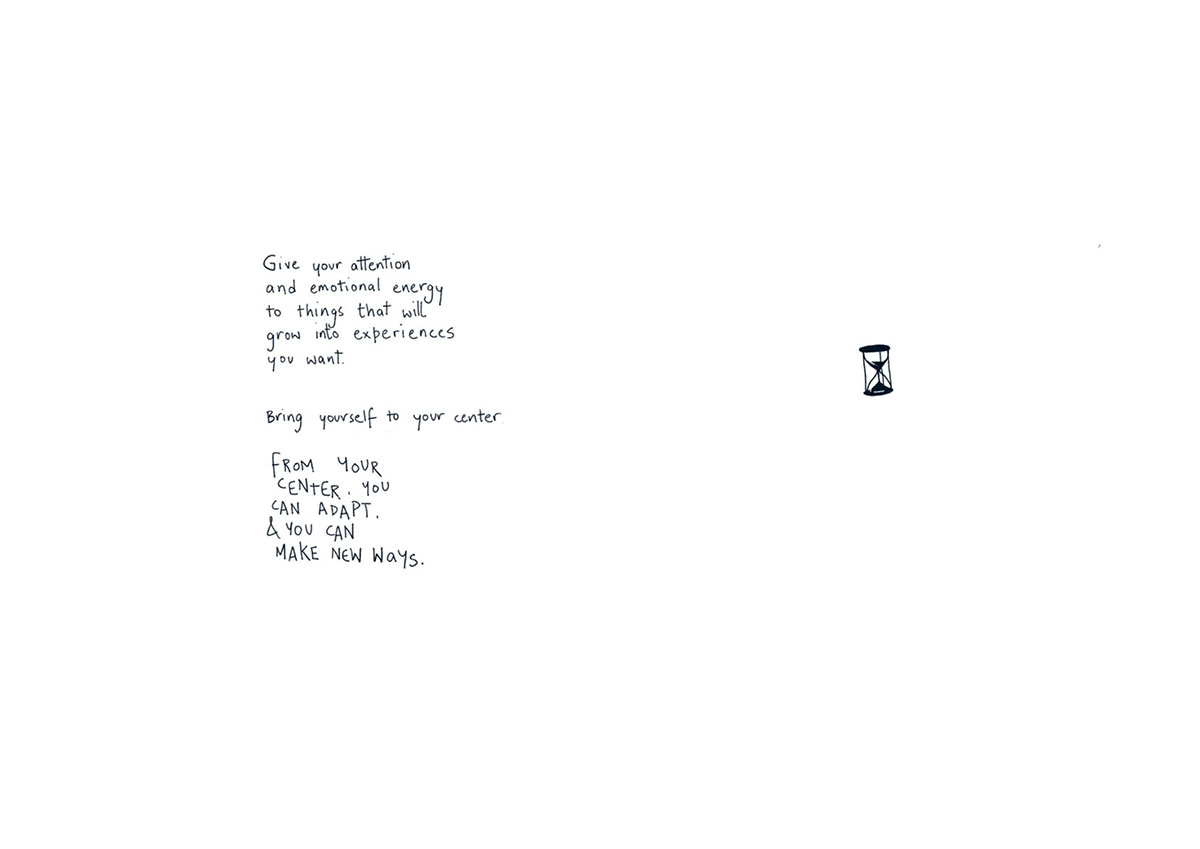 Give your attention
and emotional energy
to things that will
grow into experiences
you want.
Bring yourself to your center
FROM YOUR
CENTER. YOU
CAN ADAPT.
& YOU CAN
MAKE NEW WaYS.